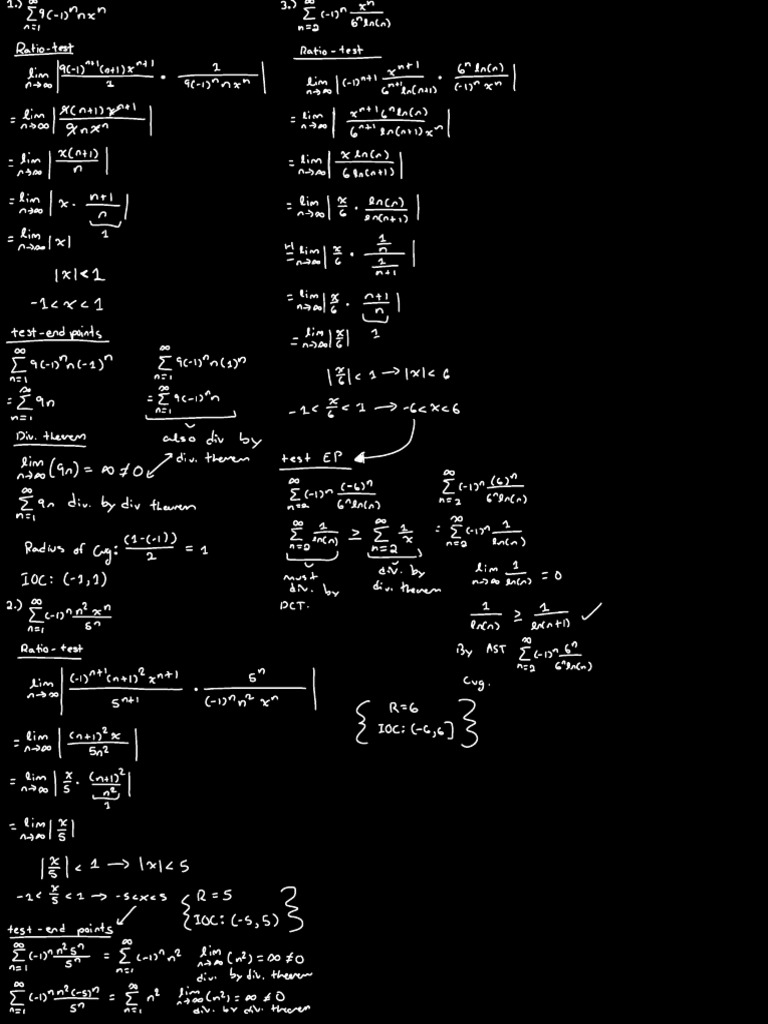 1.) ∞ Σ n=1 9(-1)^n n x^n
Ratio-test
lim n→∞ | 9(-1)^{n+1} (n+1) x^{n+1} / 1 · 1 / 9(-1)^n n x^n |
= lim n→∞ | 9(n+1) x^{n+1} / 9 n x^n |
= lim n→∞ | x(n+1) / n |
= lim n→∞ | x · (n+1) / n |
1
= lim n→∞ |x|
|x| < 1
-1 < x < 1
test-end points
∞ Σ n=1 9(-1)^n n(-1)^n
= ∞ Σ n=1 9n
∞ Σ n=1 9(-1)^n n(1)^n
= ∞ Σ n=1 9(-1)^n n
also div by
div. therem
Div. therem
lim n→∞ (9n) = ∞ ≠ 0
∞ Σ n=1 9n div. by div theorem
Radius of cvg: (1-(-1)) / 2 = 1
IOC: (-1,1)
2.) ∞ Σ n=1 (-1)^n n^2 x^n / 5^n
Ratio-test
lim n→∞ | (-1)^{n+1} (n+1)^2 x^{n+1} / 5^{n+1} · 5^n / (-1)^n n^2 x^n |
= lim n→∞ | (n+1)^2 x / 5n^2 |
= lim n→∞ | x/5 · (n+1)^2 / n^2 |
1
= lim n→∞ | x/5 |
| x/5 | < 1 → |x| < 5
-1 < x/5 < 1 → -5<x<5
{ R = 5
IOC: (-5,5) }
test-end points
∞ Σ n=1 (-1)^n n^2 5^n / 5^n = ∞ Σ n=1 (-1)^n n^2 lim n→∞ (n^2) = ∞ ≠ 0
div. by div. therem
∞ Σ n=1 (-1)^n n^2 (-5)^n / 5^n = ∞ Σ n=1 n^2 lim n→∞ (n^2) = ∞ ≠ 0
div. by div theorem
3.) ∞ Σ n=2 (-1)^n x^n / 6^n ln(n)
Ratio-test
lim n→∞ | (-1)^{n+1} x^{n+1} / 6^{n+1} ln(n+1) · 6^n ln(n) / (-1)^n x^n |
= lim n→∞ | x^{n+1} 6^n ln(n) / 6^{n+1} ln(n+1) x^n |
= lim n→∞ | x ln(n) / 6 ln(n+1) |
= lim n→∞ | x/6 · ln(n) / ln(n+1) |
H= lim n→∞ | x/6 · (1/n) / (1/(n+1)) |
= lim n→∞ | x/6 · (n+1) / n |
1
= lim n→∞ | x/6 |
| x/6 | < 1 → |x| < 6
-1 < x/6 < 1 → -6<x<6
test EP
∞ Σ n=2 (-1)^n (-6)^n / 6^n ln(n)
∞ Σ n=2 1/ln(n) ≥ ∞ Σ n=2 1/x
must
div. by
DCT.
div. by
div. therem
∞ Σ n=2 (-1)^n (6)^n / 6^n ln(n)
= ∞ Σ n=2 (-1)^n 1/ln(n)
lim n→∞ 1/ln(n) = 0
1/ln(n) ≥ 1/ln(n+1) ✓
By AST ∞ Σ n=2 (-1)^n 6^n / 6^n ln(n)
cvg.
{ R=6
IOC: (-6,6] }